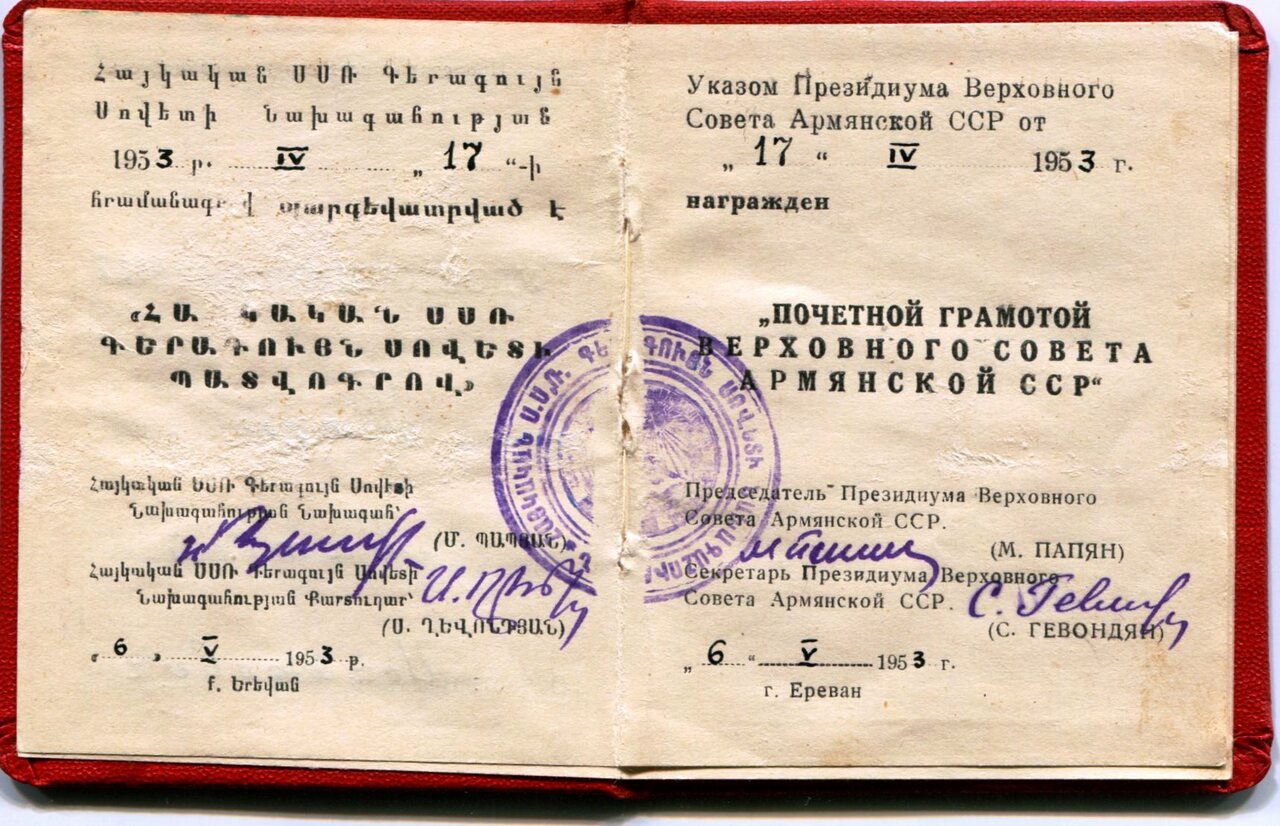 Հայկական ՍՍՌ Գերագույն
Սովետի Նախագահության
1953 թ. IV „ 17 “-ի
պարգեվատրված է
ԿԱԿԱՆ ՍՍՌ
ԳԵՐԱԳՈՒՅՆ ՍՈՎԵՏԻ
ՊԱՏՎՈԳՐՈՎ»
Հայկական ՍՍՌ Գերագույն Սովետի
Նախագահության Նախագահ՝
(Մ. ՊԱՊՅԱՆ)
Հայկական ՍՍՌ Գերագույն Սովետի
Նախագահության Քարտուղար՝
(Ս. ՂԵՎՈՆԴՅԱՆ)
« 6 » V 1953 թ.
ք. Երեվան
Указом Президиума Верховного
Совета Армянской ССР от
„ 17 “ IV 1953 г.
награжден
„ПОЧЕТНОЙ ГРАМОТОЙ
ВЕРХОВНОГО СОВЕТА
АРМЯНСКОЙ ССР“
Председатель Президиума Верховного
Совета Армянской ССР.
(М. ПАПЯН)
Секретарь Президиума Верховного
Совета Армянской ССР.
(С. ГЕВОНДЯН)
„ 6 “ V 1953 г.
г. Ереван